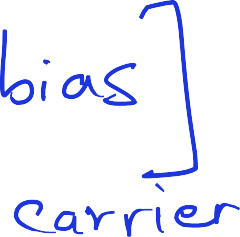 bias ]
carrier